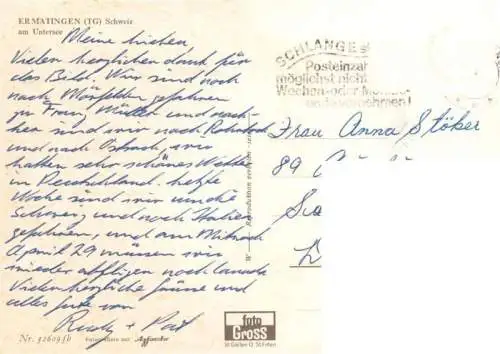 ERMATINGEN (TG) Schweiz
am Untersee
Meine Lieben,
Vielen herzlichen dank für
das Bild. Wir sind noch
nach Mörfelden gefahren
zu Frau Müller und nach
her sind wir nach
und nach wir
hatten sehr schönes Wetter
in Deutschland. letzte
Woche sind wir um die
Schweiz und nach Italien
gefahren, und am Mittwoch
April 29 müssen wir
wieder abfliegen nach Canada
Vielen herzliche Grüsse und
alles gute von
Rudy + Pat
Nr. 526095b
W
Reproduktion verboten
foto
GROSS
St Gallen
SCHLANGE
Posteinzah
möglichst nicht
Wochen- oder Monats-
ende vornehmen!
Frau Anna Stöker
89